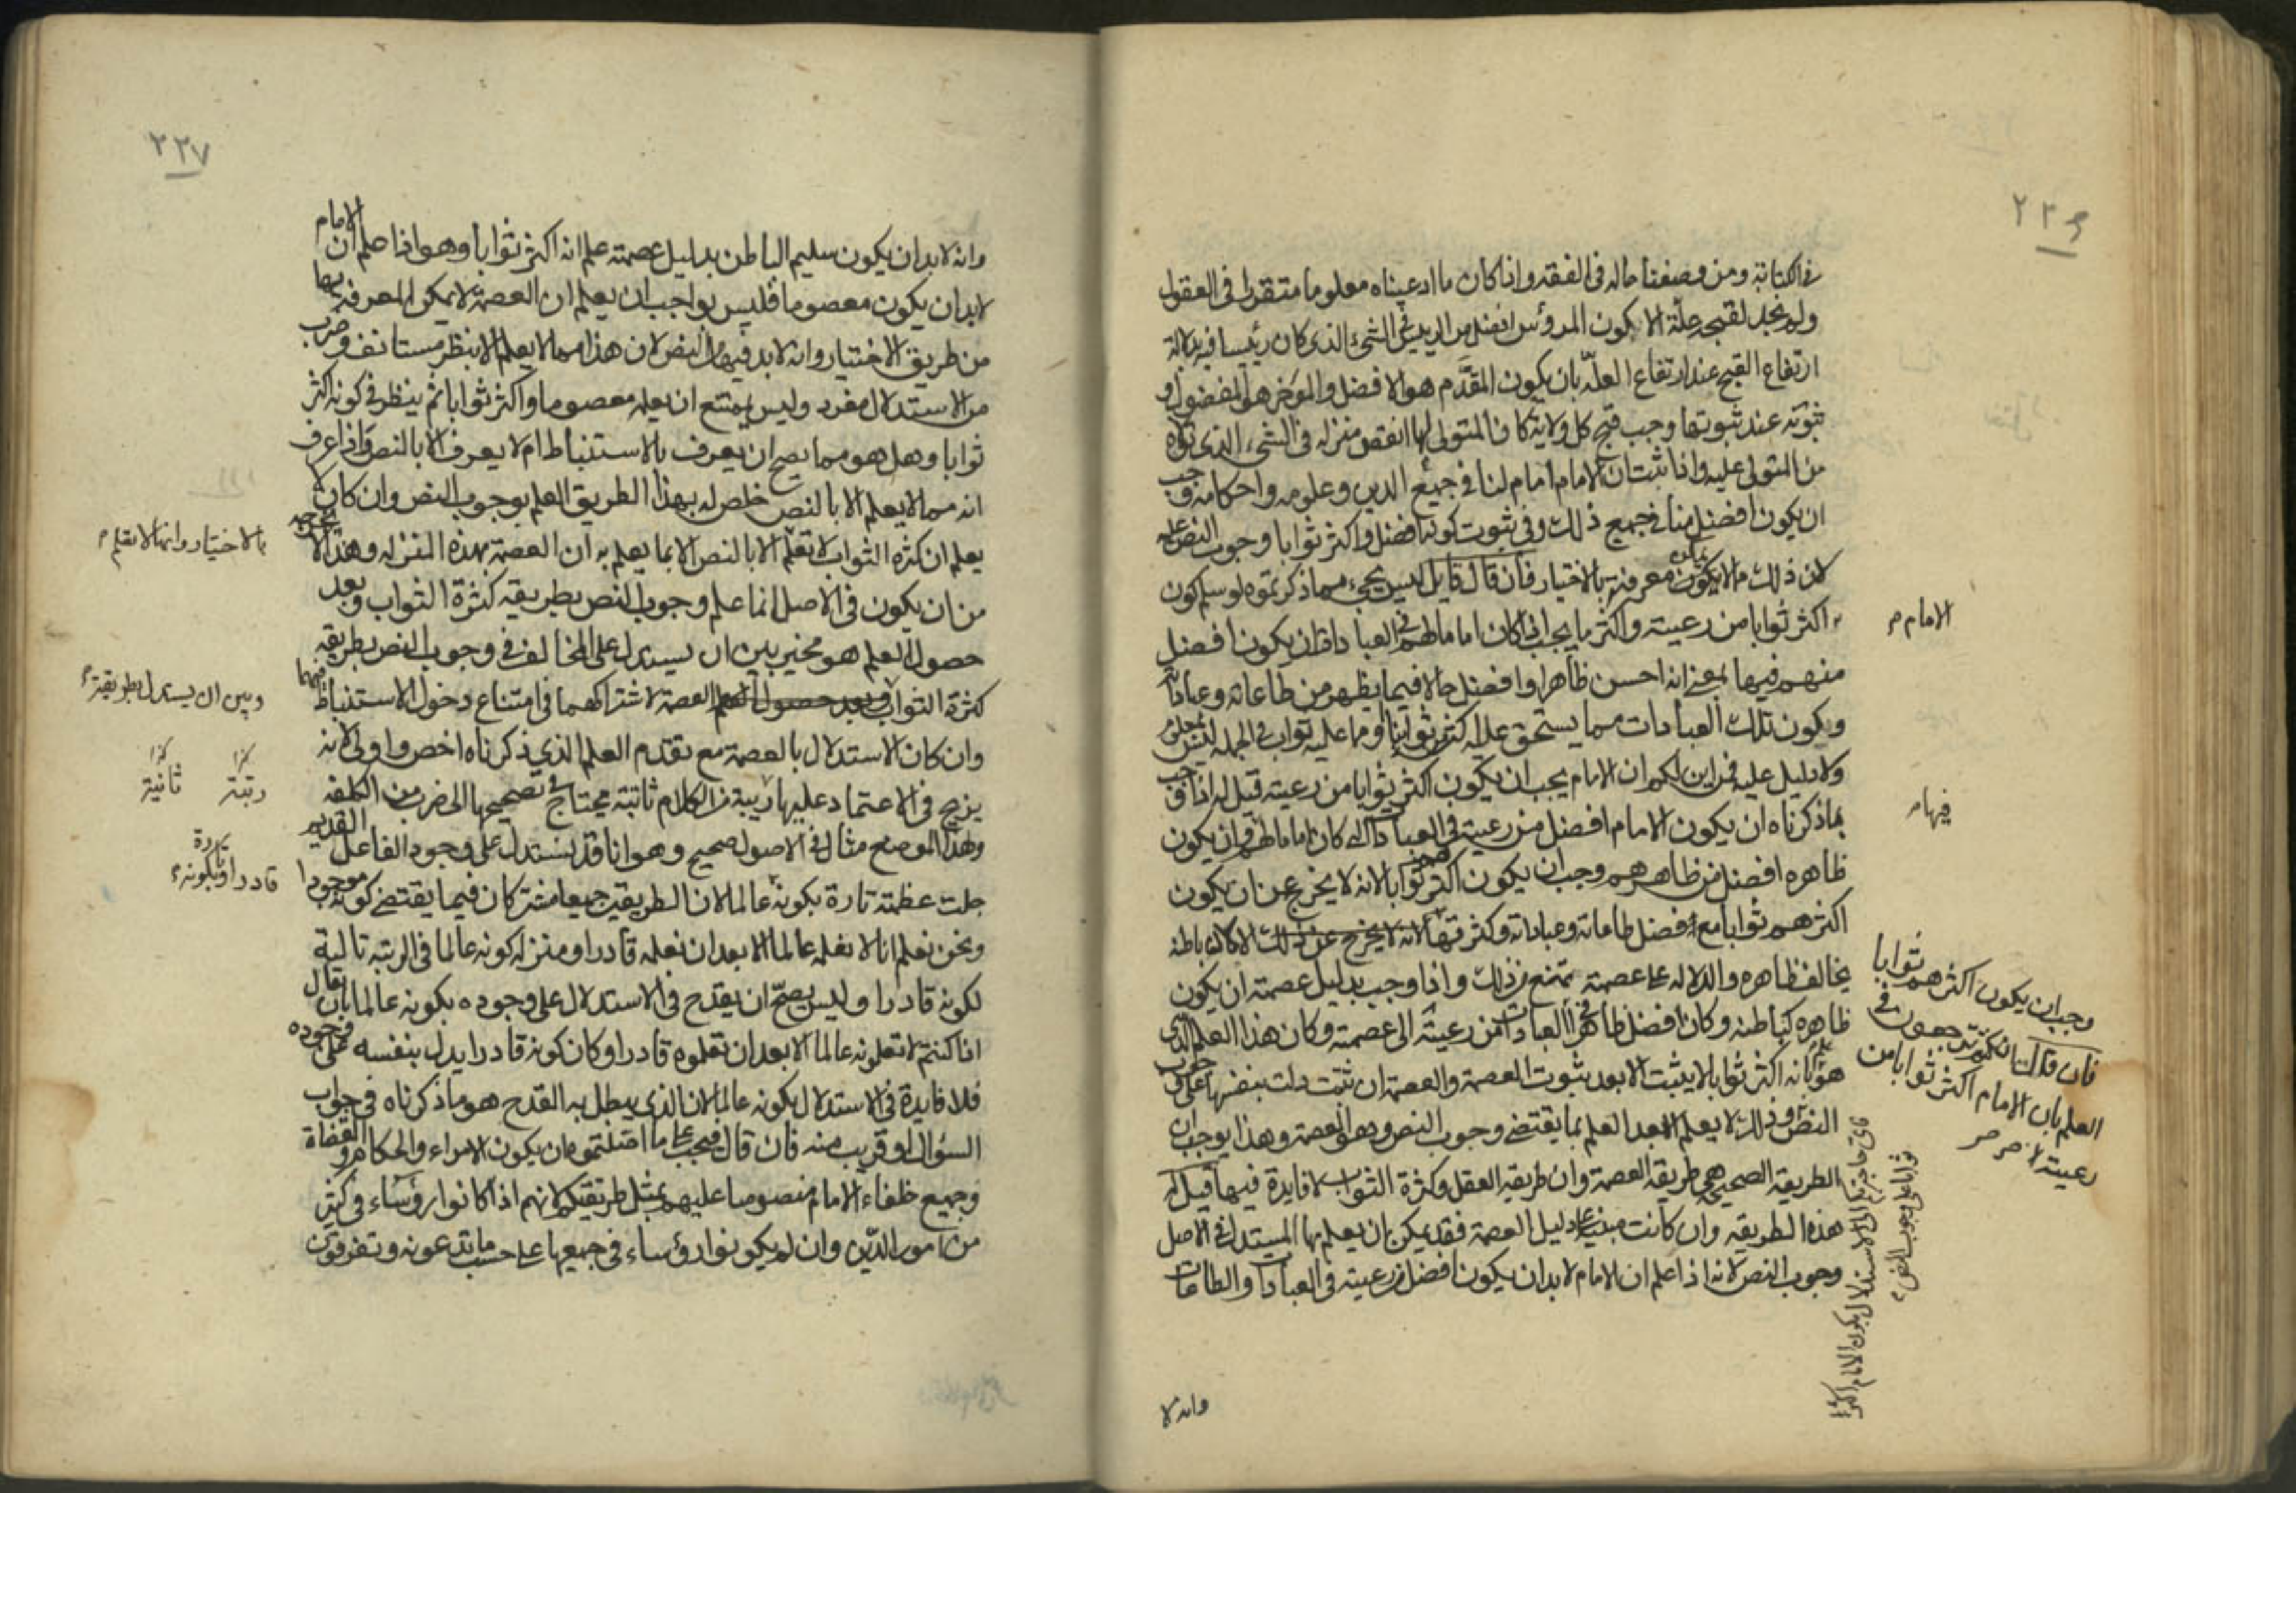 ٢٣٦
في الكتابة ومن وصفنا حاله في الفقه واذا كان ما ادعيناه معلوما متقررا في العقول
ولم نجد لقبحه علة الا كون المرؤس افضل من الرئيس في الشيء الذي كان رئيسا فيه بدلالة
ارتفاع القبح عند ارتفاع العلة بان يكون المقدم هو الافضل والموخر هو المفضول او
ثبوته عند ثبوتها وجب قبح كل ولاية كان المتولي لها انقص منزله في الشيء الذي تولاه
من المتولى عليه واذا ثبت ان الامام امام لنا في جميع الدين وعلومه واحكامه وجب
ان يكون افضل منا في جميع ذلك وفي ثبوت كونه افضل واكثر ثوابا وجوب النص عليه
لان ذلك مما لا يمكن معرفته بالاختيار فان قال قايل ليس يجيء مما ذكرتموه لو سلم كون
اكثر ثوابا من رعيته واكثر ما يجب اذا كان اماما لهم في العبادات ان يكون افضل
الامام م
منهم فيها بمعنى انه احسن ظاهرا وافضل حالا فيما يظهر من طاعاته وعباداته
ويكون تلك العبادات مما يستحق عليها كثير ثوابنا وما عليه ثواب في الجملة ليس معلوم
ولا دليل عليه فمن اين لكم ان الامام يجب ان يكون اكثر ثوابا من رعيته قيل له اذا وجب
فيها م
بما ذكرناه ان يكون الامام افضل من رعيته في العبادات اذا كان اماما لهم وان يكون
ظاهره افضل من ظاهرهم وجب ان يكون اكثرهم ثوابا لانه لا يخرج عن ان يكون
اكثرهم ثوابا مع افضل طاعاته وعباداته وكثرتها لانه لا يخرج عن ذلك الا كان باطنه
يخالف ظاهره والدلاله على عصمته تمنع من ذلك واذا وجب بدليل عصمته ان يكون
ظاهره كباطنه وكان افضل ظاهرا في العبادات من رعيته الى عصمته وكان هذا العلم الذي
هو بانه اكثر ثوابا لا يثبت الا بعد ثبوت العصمة والعصمة ان ثبتت دلت بنفسها على وجوب
النص وذلك لا يعلم الا بعد العلم بما يقتضي وجوب النص وهو العصمة وهذا يوجب ان
الطريقه الصحيحه هي طريقة العصمة وان طريقة العقل وكثرة الثواب لا فايدة فيها قيل له
هذه الطريقه وان كانت مبنية على دليل العصمة فقد يمكن بان يعلم بها المستدل في الاصل
وجوب النص لانه اذا علم ان الامام لا بد ان يكون افضل من رعيته في العبادات والطاعات
وجب ان يكون اكثرهم ثوابا
فان قال انكم ترجعون في
العلم بان الامام اكثر ثوابا من
رعيته
وانه لا
٢٣٧
وانه لا بد ان يكون سليم الباطن بدليل عصمته علم انه اكثر ثوابا وهو اذا علم ان الامام
لا بد ان يكون معصوما فليس بواجب ان يعلم ان العصمة لا يمكن المعرفة بها
من طريق الاختيار وانه لا بد فيها من النص لان هذا مما لا يعلم الا بنظر مستانف وضرب
من الاستدلال مفرد وليس يمتنع ان يعلمه معصوما واكثر ثوابا ثم ينظر في كونه اكثر
ثوابا وهل هو مما يصح ان يعرف بالاستنباط ام لا يعرف الا بالنص واذا عرف
انه مما لا يعلم الا بالنص خلص له بهذا الطريق العلم بوجوب النص وان كان لا
يعلم ان كثرة الثواب لا تعلم الا بالنص الا بما يعلم به ان العصمة بهذه المنزله وهذا لا يخرجه
بالاختيار وانها لا تعلم م
من ان يكون في الاصل انما علم وجوب النص بطريقه كثرة الثواب وبعد
حصول العلم هو مخير بين ان يستدل على المخالف في وجوب النص بطريقه
كثرة الثواب وبعد حصول العلم العصمة لاشتراكهما في امتناع دخول الاستنباط فيهما
وبين ان يستدل بطريقة
وان كان الاستدلال بالعصمة مع تقدم العلم الذي ذكرناه اخص واولى لانه
يزيح في الاعتماد عليها ريبة من الكلام ثابتة يحتاج في تصحيحها الى ضرب من الكلفه
كذا رتبة كذا ثانية
وهذا الموضع مثال في الاصول صحيح وهو انا قد نستدل على وجود الفاعل القديم
جلت عظمته تارة بكونه عالما لان الطريقين جميعا مشتركان فيما يقتضي كونه موجودا
قادرا وتارة بكونه
ونحن نعلم انا لا نعلمه عالما الا بعد ان نعلمه قادرا ومنزله كونه عالما في الرتبه تالية
لكونه قادرا وليس يصح ان يقدح في الاستدلال على وجوده بكونه عالما بان يقال
اذا كنتم لا تعلمونه عالما الا بعد ان تعلموه قادرا وكان كونه قادرا يدل بنفسه على وجوده
فلا فايدة في الاستدلال بكونه عالما لان الذي يبطل به القدح هو ما ذكرناه في جواب
السؤال او قريب منه فان قال فيجب على ما اصلتموه ان يكون الامراء والحكام والقضاة
وجميع خلفاء الامام منصوصا عليهم بمثل طريقتكم لانهم اذا كانوا رؤساء في كثير
من امور الدين وان لم يكونوا رؤساء في جميعها على حسب ما تدعونه وتفرقون